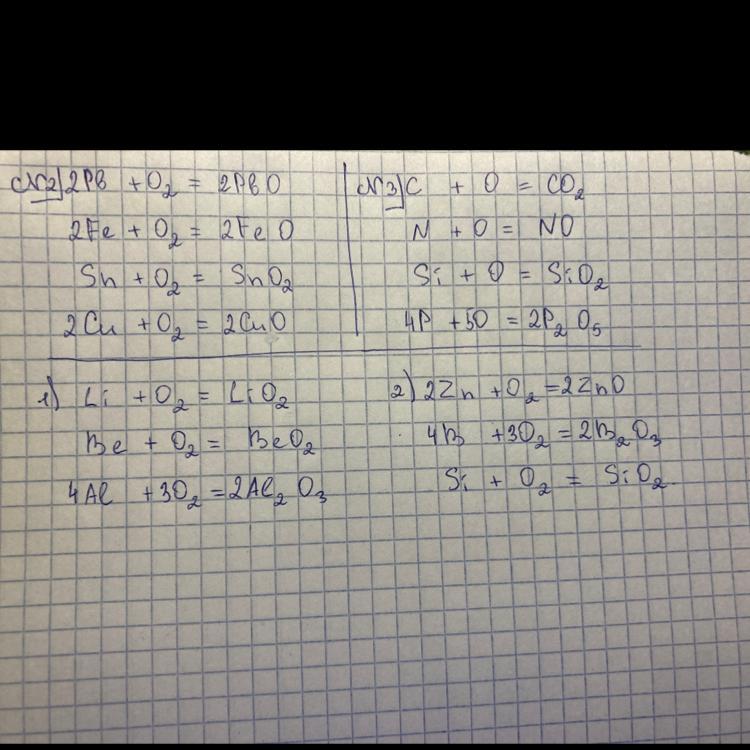 №2) 2Pb + O₂ = 2PbO
2Fe + O₂ = 2FeO
Sn + O₂ = SnO₂
2Cu + O₂ = 2CuO
№3) C + O = CO₂
N + O = NO
Si + O = SiO₂
4P + 5O = 2P₂O₅
1) Li + O₂ = LiO₂
Be + O₂ = BeO₂
4Al + 3O₂ = 2Al₂O₃
2) 2Zn + O₂ = 2ZnO
4B + 3O₂ = 2B₂O₃
Si + O₂ = SiO₂